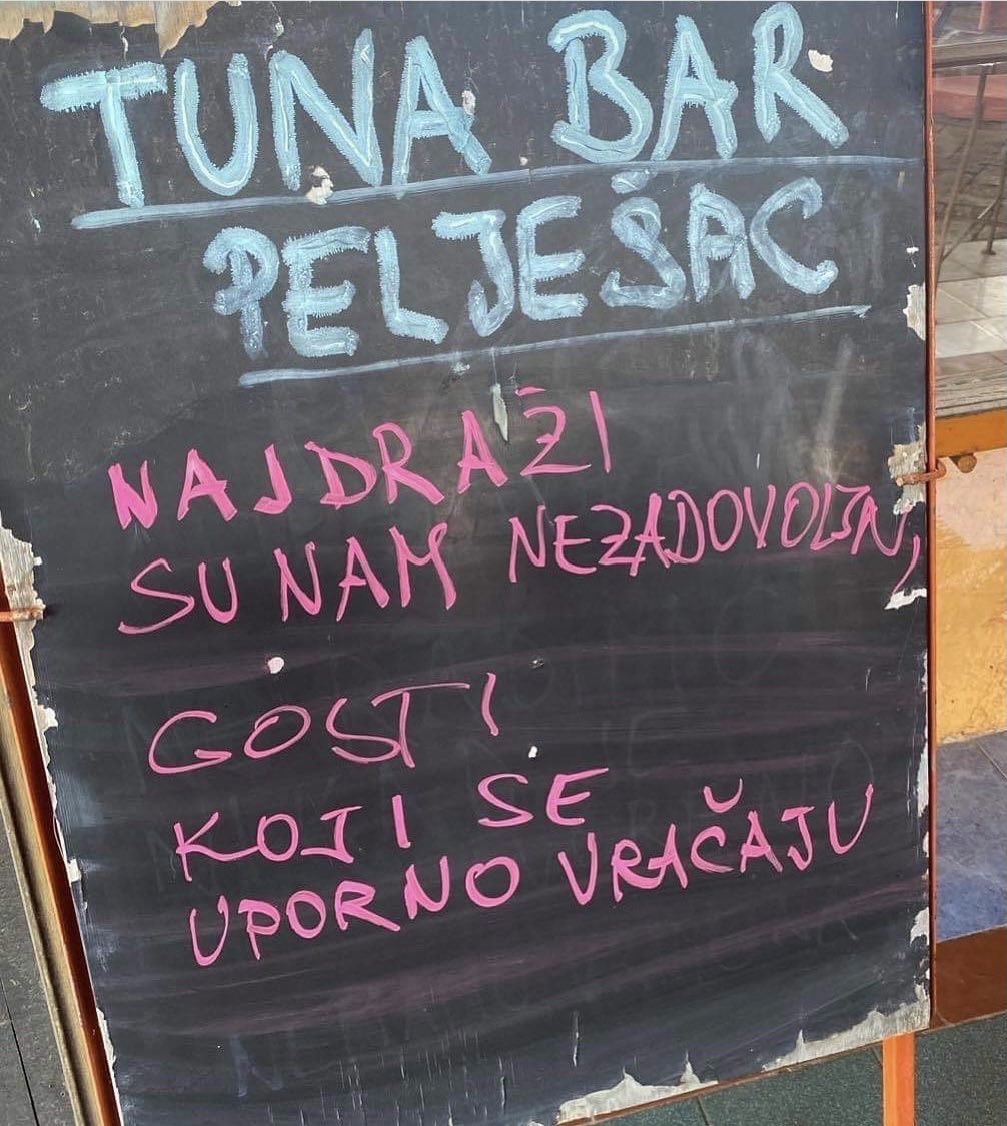 TUNA BAR
PELJEŠAC
NAJDRAŽI
SU NAM NEZADOVOLJNI
GOSTI
KOJI SE
UPORNO VRAČAJU